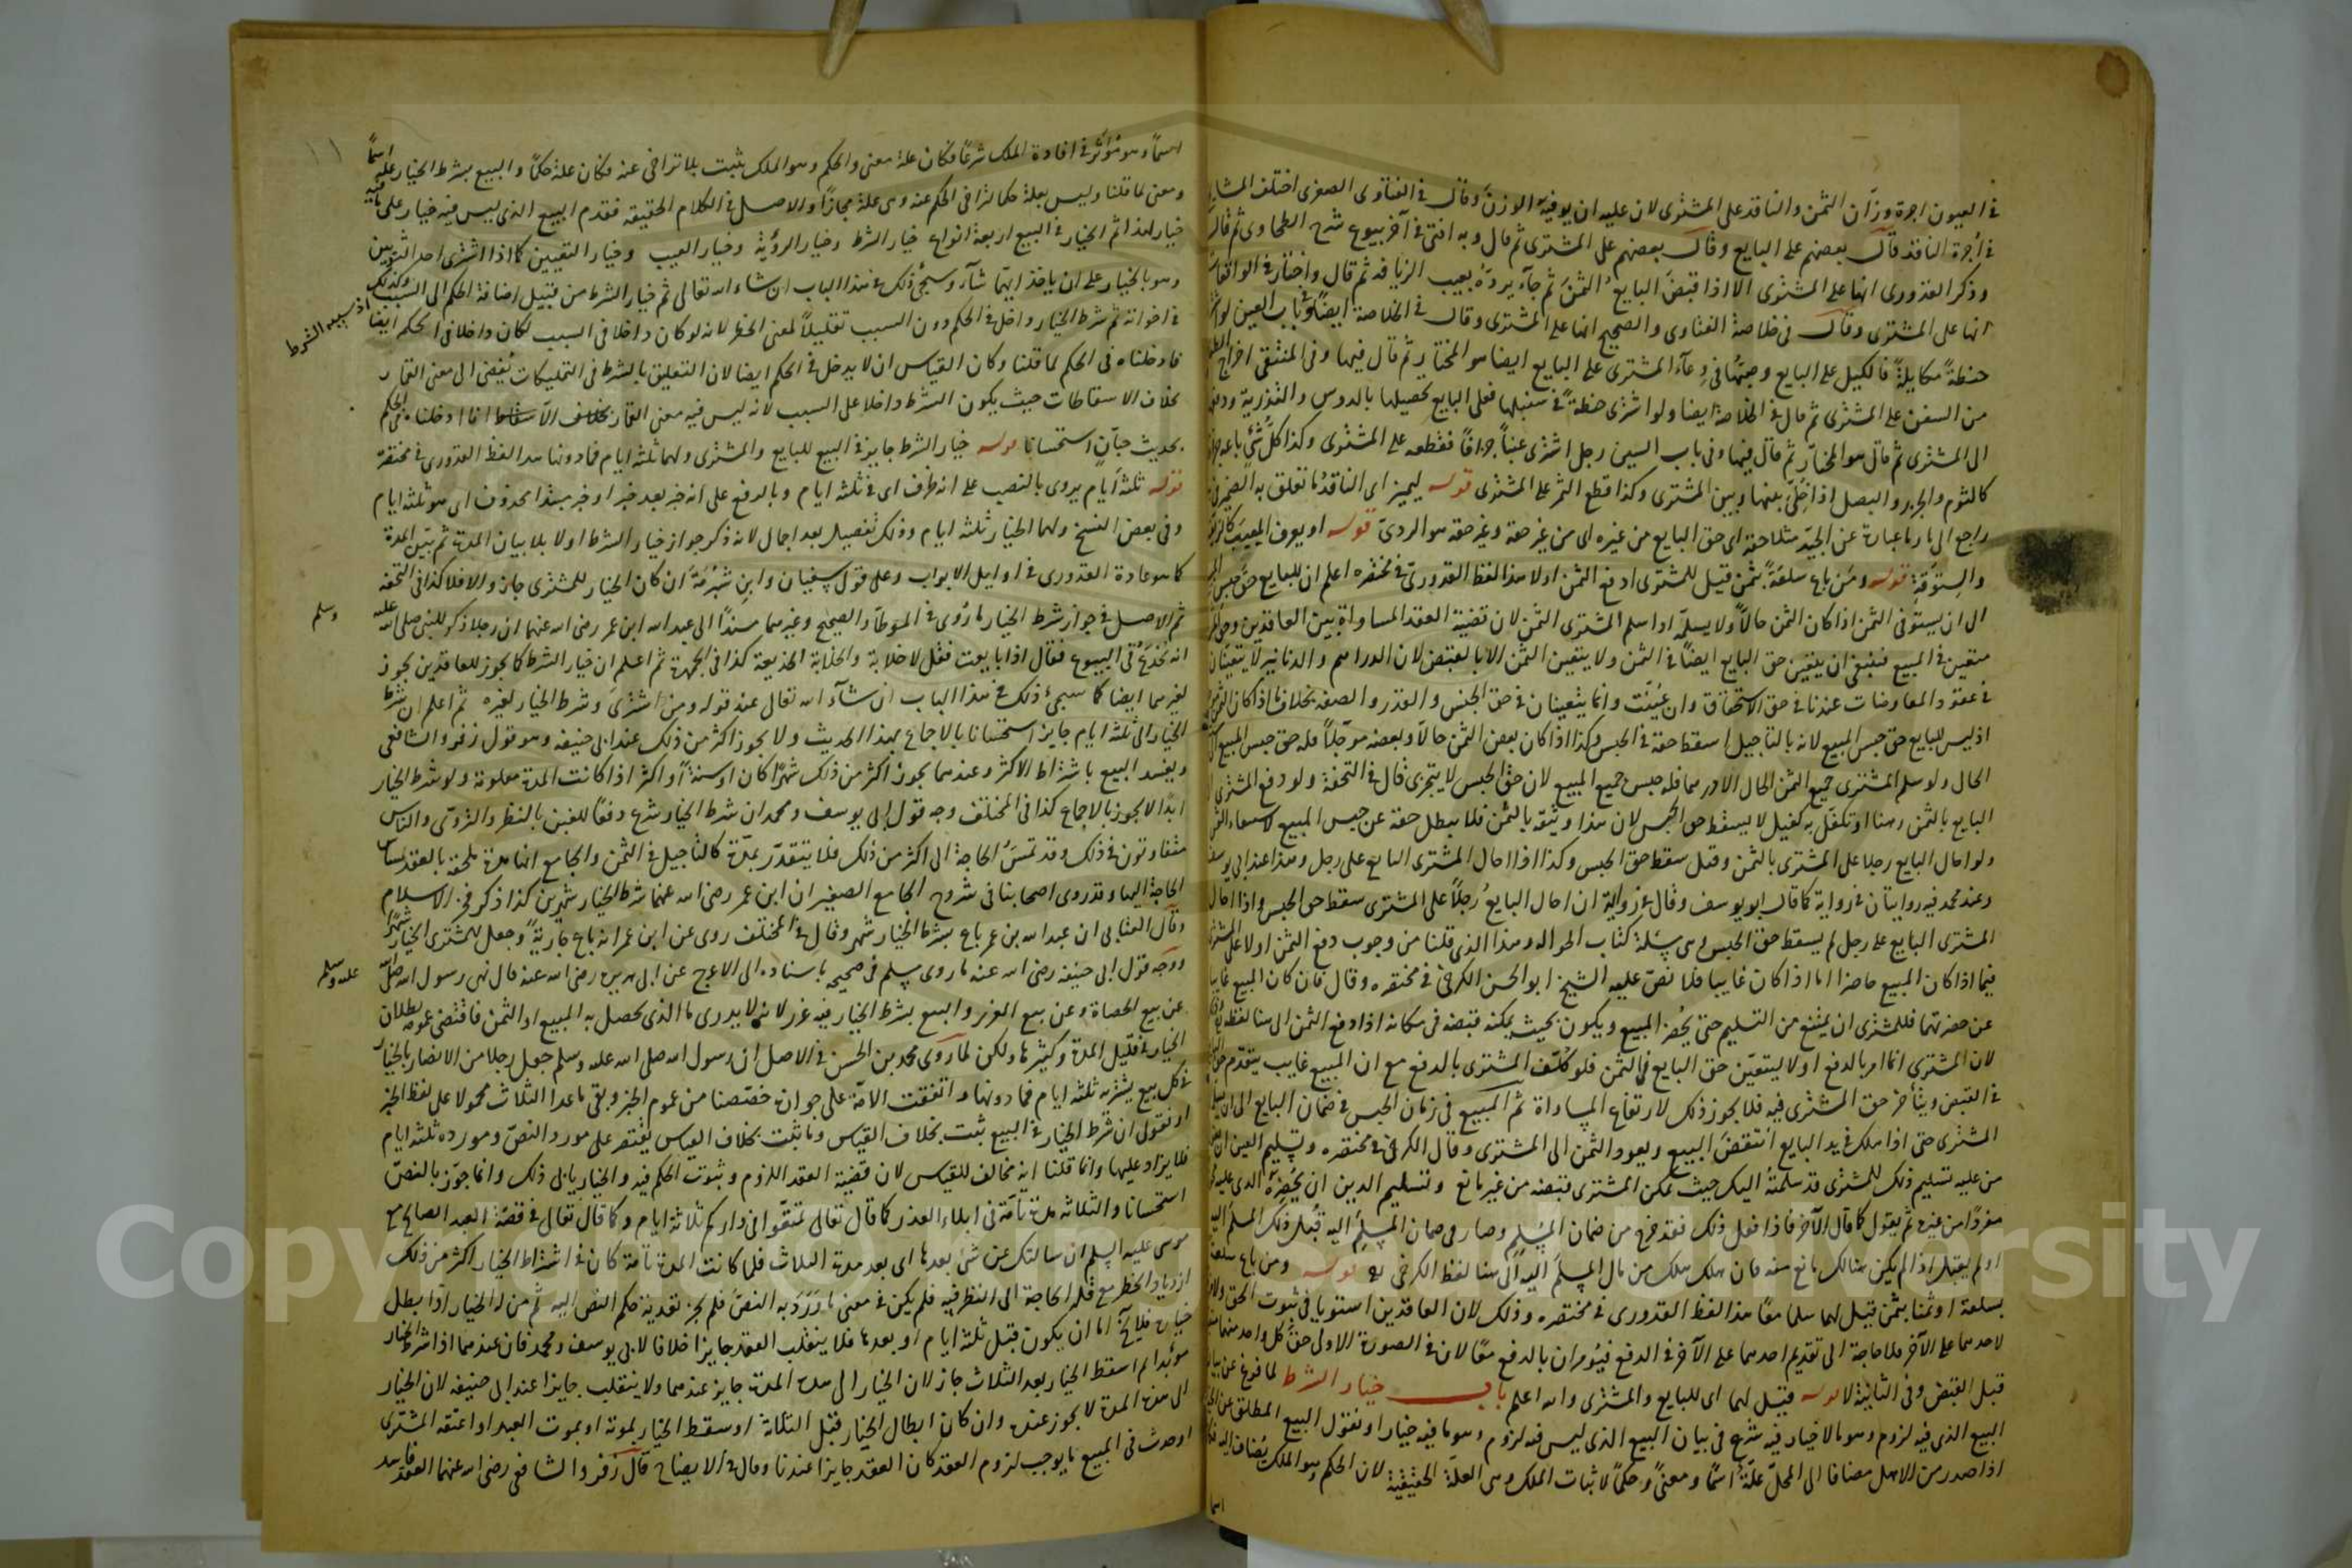 في العيون اجرة وزّان الثمن والناقد على المشترى لان عليه ان يوفيه الوزن وقال في الفتاوى الصغرى اختلف المشايخ
في أجرة الناقد قال بعضهم على البايع وقال بعضهم على المشترى ثم قال وبه افتى في آخر بيوع شرح الطحاوى ثم قال
وذكر القدورى انها على المشترى الا اذا قبض البايع الثمن ثم جاء يردّه بعيب الزيافة ثم قال واختار في الواقعات
انها على المشترى وقال فى خلاصة الفتاوى والصحيح انها على المشترى وقال في الخلاصة ايضا وفي باب العين لو اشترى
حنطةً مكايلةً فالكيل على البايع وصبّها فى وعآء المشترى على البايع ايضا هو المختار ثم قال فيها وفى المنتقى اخراج الطعام
من السفن على المشترى ثم قال في الخلاصة ايضا ولو اشترى حنطةً في سنبلها فعلى البايع تحصيلها بالدوس والتذرية ودفعها
الى المشترى ثم قال هو المختار ثم قال فيها وفى باب السين رجل اشترى عنباً جزافاً فقطعه على المشترى وكذا كل شئ باعه جزافا
كالثوم والجزر والبصل اذا خلّى بينها وبين المشترى وكذا قطع الثمر على المشترى قوله ليميز اى الناقد ما تعلق به الضمير فى
راجع الى ما وما عبارة عن الجيّد مثلا حقه اى حق البايع من غيره اى من غير حقه وغير حقه هو الردئ قوله او يعرف المعيب كالزيّف
والستوقة قوله ومن باع سلعةً بثمن قيل للمشترى ادفع الثمن اولا هذا لفظ القدورىّ في مختصره اعلم ان للبايع حق حبس المبيع
الى ان يستوفى الثمن اذا كان الثمن حالاً ولا يسلمه اذا سلم المشترى الثمن لان قضية العقد المساواة بين العاقدين وحق المشترى
متعين في المبيع فينبغى ان يتعين حق البايع ايضاً في الثمن ولا يتعين الثمن الا بالقبض لان الدراهم والدنانير لا يتعينان
في عقود المعاوضات عندنا في حق الاستحقاق وان عُيّنت وانما يتعينان في حق الجنس والقدر والصفة بخلاف ما اذا كان الثمن
اذ ليس للبايع حق حبس المبيع لانه بالتأجيل اسقط حقه في الحبس وكذا اذا كان بعض الثمن حالاً وبعضه مؤجلاً فله حق حبس المبيع
الحال ولو سلم المشترى جميع الثمن الحال الا درهما فله حبس جميع المبيع لان حق الحبس لا يتجزى قال في التحفة ولو دفع المشترى
البايع بالثمن رهنا او تكفّل به كفيل لا يسقط حق الحبس لان هذا وثيقة بالثمن فلا يبطل حقه عن حبس المبيع لاستيفاء الثمن
ولو احال البايع رجلا على المشترى بالثمن وقبل سقط حق الحبس وكذا اذا احال المشترى البايع على رجل وهذا عند ابى يوسف
وعند محمد فيه روايتان في رواية كما قال ابو يوسف وقال في رواية ان احال البايع رجلاً على المشترى سقط حق الحبس واذا احال
المشترى البايع على رجل لم يسقط حق الحبس وهى مسئلة كتاب الحوالة وهذا الذى قلنا من وجوب دفع الثمن اولا على المشترى
فيما اذا كان المبيع حاضرا اما اذا كان غايبا فلا نصّ عليه الشيخ ابو الحسن الكرخى في مختصره وقال فان كان المبيع غايبا
عن حضرتهما فللمشترى ان يمتنع من التسليم حتى يُحضر المبيع ويكون بحيث يمكنه قبضه فى مكانه اذا دفع الثمن الى هنا لفظه
لان المشترى انما امر بالدفع اولا ليتعيّن حق البايع في الثمن فلو كُلّف المشترى بالدفع مع ان المبيع غايب يتقدّم حق البايع
في القبض ويتأخر حق المشترى فيه فلا يجوز ذلك لارتفاع المساواة ثم المبيع فى زمان الحبس فى ضمان البايع الى ان يسلمه
المشترى حتى اذا هلك في يد البايع انتقض البيع ويعود الثمن الى المشترى وقال الكرخى في مختصره وتسليم العين
من عليه تسليم ذلك للمشترى قد سلمته اليك حيث يمكن المشترى قبضه من غير مانع وتسليم الدين ان يُحضره الذى عليه
مفرداً من غيره ثم يقول كما قال الآخر فاذا فعل ذلك فقد خرج من ضمان المُسْلِم وصار فى ضمان المسلَّم اليه قبل ذلك المسلم اليه
او لم يقبل اذا لم يكن هنالك مانع منه فان هلك هلك من مال المسلَّم اليه الى هنا لفظ الكرخى قوله ومن باع سلعة
بسلعة او ثمنا بثمن قيل لهما سلما معًا هذا لفظ القدورى في مختصره وذلك لان العاقدين استويا في ثبوت الحق ولا
لاحدهما على الآخر فلا حاجة الى تقديم احدهما على الآخر في الدفع فيُؤمران بالدفع معًا لان في الصورة الاولى حق كل واحد منهما
قبل القبض وفى الثانية لا قوله قيل لهما اى للبايع والمشترى والله اعلم باب خيار الشرط لما فرغ عن بيان
البيع الذى فيه لزوم وهو ما لا خيار فيه شرع فى بيان البيع الذى ليس فيه لزوم وهو ما فيه خيار او نقول البيع المطلق عن الخيار
اذا صدر من الاهل مضافا الى المحلّ علّة اسمًا ومعنًى وحكمًا لاثبات الملك وهى العلّة الحقيقية لان الحكم وهو الملك يُضاف اليه
اسما
١١
اسماً وهو مؤثر في افادة الملك شرعًا فكان علة معنى والحكم وهو الملك يثبت بلا تراخى عنه فكان علة حكمًا والبيع بشرط الخيار علة اسمًا
ومعنى لما قلنا وليس بعلة حكما لتراخى الحكم عنه وهى علة مجازاً والاصل في الكلام الحقيقة فقدم البيع الذى ليس فيه خيار على ما فيه
خيار لهذا ثم الخيار في البيع اربعة انواع خيار الشرط وخيار الرؤية وخيار العيب وخيار التعيين كما اذا اشترى احد الثوبين
وهو بالخيار على ان ياخذ ايهما شآء وسيجئ ذلك في هذا الباب ان شاء الله تعالى ثم خيار الشرط من قبيل اضافة الحكم الى السبب وكذلك
اذ سببه الشرط
في اخواته ثم شرط الخيار داخل في الحكم دون السبب تقليلاً لمعنى الخطر لانه لو كان داخلا فى السبب لكان داخلا فى الحكم ايضا
فادخلناه فى الحكم لما قلنا وكان القياس ان لا يدخل في الحكم ايضا لان التعليق بالشرط فى التمليكات يُفضى الى معنى القمار
بخلاف الاسقاطات حيث يكون الشرط داخلا على السبب لانه ليس فيه معنى القمار بخلاف الاسقاط انما ادخلناه في الحكم
بحديث حبّان استحسانا قوله خيار الشرط جايز في البيع للبايع والمشترى ولهما ثلثة ايام فما دونها هذا لفظ القدورى في مختصره
قوله ثلثة ايام يروى بالنصب على انه ظرف اى في ثلثة ايام وبالرفع على انه خبر بعد خبر او خبر مبتدا محذوف اى هو ثلثة ايام
وفى بعض النسخ ولهما الخيار ثلثة ايام وذلك تفصيل بعد اجمال لانه ذكر جواز خيار الشرط اولا بلا بيان المدة ثم بيّن المدة
كما هو عادة القدورى في اوايل الابواب وعلى قول سفيان وابن شبرمة ان كان الخيار للمشترى جاز والا فلا كذا فى التحفة
ثم الاصل في جواز شرط الخيار ما رُوى فى الموطآ والصحيح وغيرهما مسنداً الى عبد الله ابن عمر رضى الله عنهما ان رجلا ذكر للنبى صلى الله عليه
وسلم
انه يُخدع في البيوع فقال اذا بايعت فقل لا خلابة والخلابة الخديعة كذا فى الجمهرة ثم اعلم ان خيار الشرط كما يجوز للعاقدين يجوز
لغيرهما ايضا كما سيجئ ذلك في هذا الباب ان شآء الله تعالى عند قوله ومن اشترى وشرط الخيار لغيره ثم اعلم ان شرط
الخيار الى ثلثة ايام جايز استحسانا بالاجماع بهذا الحديث ولا يجوز اكثر من ذلك عند ابى حنيفة وهو قول زفر والشافعى
ويفسد البيع باشتراط الاكثر وعندهما يجوز اكثر من ذلك شهرًا كان او سنةً او اكثر اذا كانت المدة معلومة ولو شرط الخيار
ابدًا لا يجوز بالاجماع كذا فى المختلف وجه قول ابى يوسف ومحمد ان شرط الخيار شرع دفعًا للغبن بالنظر والتروّى والناس
متفاوتون في ذلك وقد تمسّ الحاجة الى اكثر من ذلك فلا يتقدّر بمدة كالتأجيل في الثمن والجامع انها مدة ملحقة بالعقد لمساس
الحاجة اليها وقد روى اصحابنا فى شروح الجامع الصغير ان ابن عمر رضى الله عنهما شرط الخيار شهرين كذا ذكر فخر الاسلام
وقال العتابى ان عبد الله بن عمر باع بشرط الخيار شهر وقال في المختلف روى عن ابن عمر انه باع جاريةً وجعل للمشترى الخيار شهرًا
ووجه قول ابى حنيفة رضى الله عنه ما روى مسلم فى صحيحه باسناده الى الاعرج عن ابى هريرة رضى الله عنه قال نهى رسول الله صلى الله
عليه وسلم
عن بيع الحصاة وعن بيع الغرر والبيع بشرط الخيار فيه غرر لانه لا يدرى ما الذى يحصل به المبيع او الثمن فاقتضى عمومه بطلان
الخيار في قليل المدة وكثيرها ولكن لما روى محمد بن الحسن في الاصل ان رسول الله صلى الله عليه وسلم جعل رجلا من الانصار بالخيار
في كل بيع يشتريه ثلثة ايام فما دونها واتفقت الامة على جوازه خصّصنا من عموم الخبر وبقى ما عدا الثلاث محمولا على لفظ الخبر
او نقول ان شرط الخيار في البيع ثبت بخلاف القياس وما ثبت بخلاف القياس يقتصر على مورد النصّ ومورده ثلثة ايام
فلا يزاد عليها وانما قلنا انه مخالف للقياس لان قضية العقد اللزوم وثبوت الحكم فيه والخيار يابى ذلك وانما جوّز بالنصّ
استحسانا والثلاثة مدة تامّة فى ابلاء العذر كما قال تعالى تمتّعوا فى داركم ثلاثة ايام وكما قال تعالى في قصة العبد الصالح مع
موسى عليه السلم ان سالتك عن شئ بعدها اى بعد مدة الثلاث فلما كانت المدة تامة كان في اشتراط الخيار اكثر من ذلك
ازدياد الخطر مع قلة الحاجة الى النظر فيه فلم يكن في معنى ما وَرَدَ به النصّ فلم يجز تعدية حكم النص اليه ثم من له الخيار اذا ابطل
خياره فلا يخ اما ان يكون قبل ثلثة ايام او بعدها فلا ينقلب العقد جايزا خلافا لابى يوسف ومحمد فان عندهما اذا شرط الخيار
مؤبدا ثم اسقط الخيار بعد الثلاث جاز لان الخيار الى هذه المدة جايز عندهما ولا ينقلب جايزا عند ابى حنيفة لان الخيار
الى هذه المدة لا يجوز عنده وان كان ابطال الخيار قبل الثلاثة او سقط الخيار بموته او بموت العبد او اعتقه المشترى
او حدث فى المبيع ما يوجب لزوم العقد كان العقد جايزا عندنا وقال في الايضاح قال زفر والشافعى رضى الله عنهما العقد فاسد